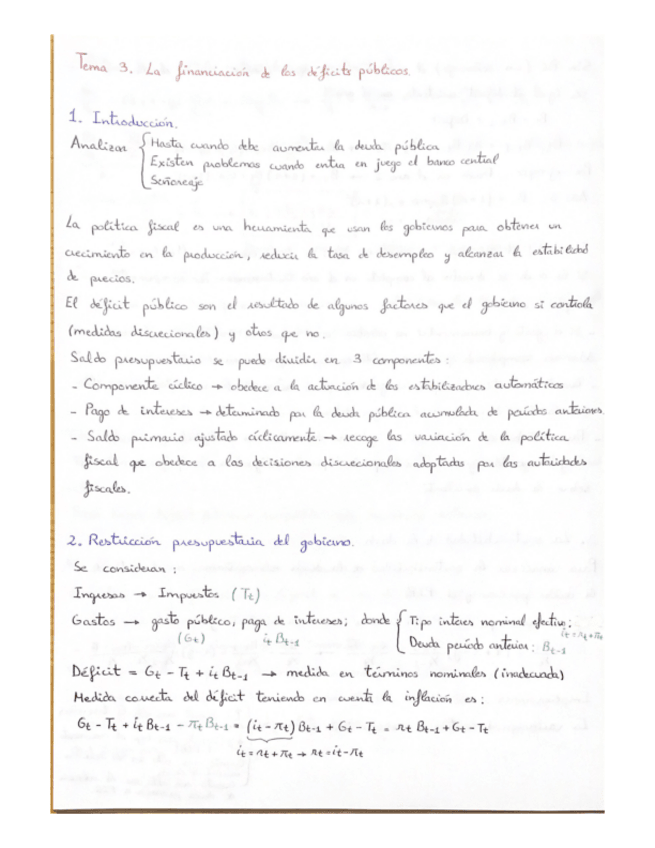 Tema 3. La financiación de los déficits públicos.
1. Introducción.
Analizar { Hasta cuando debe aumentar la deuda pública
Existen problemas cuando entra en juego el banco central
Señoreaje
La política fiscal es una herramienta que usan los gobiernos para obtener un
crecimiento en la producción, reducir la tasa de desempleo y alcanzar la estabilidad
de precios.
El déficit público son el resultado de algunos factores que el gobierno si controla
(medidas discrecionales) y otros que no.
Saldo presupuestario se puede dividir en 3 componentes:
- Componente cíclico → obedece a la actuación de los estabilizadores automáticos
- Pago de intereses → determinado por la deuda pública acumulada de periodos anteriores.
- Saldo primario ajustado cíclicamente → recoge las variación de la política
fiscal que obedece a las decisiones discrecionales adoptadas por las autoridades
fiscales.
2. Restricción presupuestaria del gobierno.
Se consideran:
Ingresos → Impuestos (Tt)
Gastos → gasto público, paga de intereses; donde { Tipo interes nominal efectivo:
(Gt) it Bt-1 it = rt + πt
Deuda periodo anterior: Bt-1
Déficit = Gt - Tt + it Bt-1 → medida en términos nominales (inadecuada)
Medida correcta del déficit teniendo en cuenta la inflación es:
Gt - Tt + it Bt-1 - πt Bt-1 = (it - πt) Bt-1 + Gt - Tt = rt Bt-1 + Gt - Tt
it = rt + πt → rt = it - πt